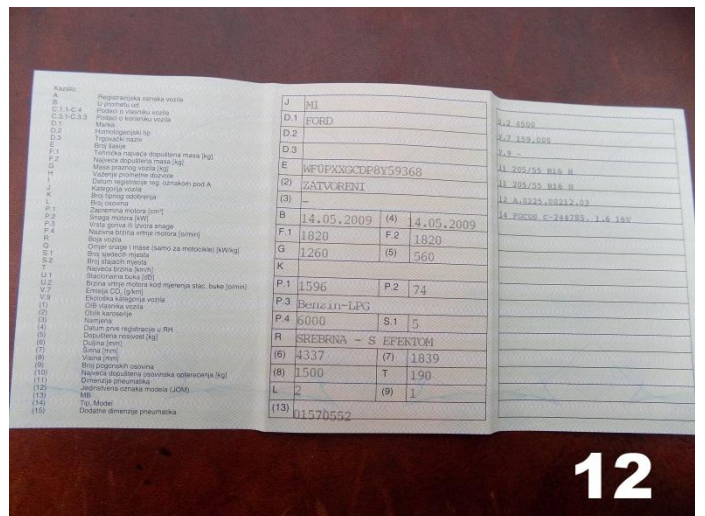 Kazalo:
A Registracijska oznaka vozila
B U prometu od
C.1.1-C.4 Podaci o vlasniku vozila
C.3.1-C.3.3 Podaci o korisniku vozila
D.1 Marka
D.2 Homologacijski tip
D.3 Trgovački naziv
E Broj šasije
F.1 Tehnička najveća dopuštena masa [kg]
F.2 Najveća dopuštena masa [kg]
G Masa praznog vozila [kg]
H Važenje prometne dozvole
I Datum registracije reg. oznakom pod A
J Kategorija vozila
K Broj tipnog odobrenja
L Broj osovina
P.1 Zapremina motora [cm³]
P.2 Snaga motora [kW]
P.3 Vrsta goriva ili izvora snage
P.4 Nazivna brzina vrtnje motora [o/min]
R Boja vozila
Q Omjer snage i mase (samo za motocikle) [kW/kg]
S.1 Broj sjedećih mjesta
S.2 Broj stajaćih mjesta
T Najveća brzina [km/h]
U.1 Stacionarna buka [dB]
U.2 Brzina vrtnje motora kod mjerenja stac. buke [o/min]
V.7 Emisija CO₂ [g/km]
V.9 Ekološka kategorija vozila
(1) OIB vlasnika vozila
(2) Oblik karoserije
(3) Namjena
(4) Datum prve registracije u RH
(5) Dopuštena nosivost [kg]
(6) Duljina [mm]
(7) Širina [mm]
(8) Visina [mm]
(9) Broj pogonskih osovina
(10) Najveća dopuštena osovinska opterećenja [kg]
(11) Dimenzije pneumatika
(12) Jedinstvena oznaka modela (JOM)
(13) MB
(14) Tip, Model
(15) Dodatne dimenzije pneumatika
J M1
D.1 FORD
D.2
D.3
E WF0PXXGCDP8Y59368
(2) ZATVORENI
(3) -
B 14.05.2009 (4) 14.05.2009
F.1 1820 F.2 1820
G 1260 (5) 560
K
P.1 1596 P.2 74
P.3 Benzin-LPG
P.4 6000 S.1 5
R SREBRNA - S EFEKTOM
(6) 4337 (7) 1839
(8) 1500 T 190
L 2 (9) 1
(13) 01570552
U.2 4500
V.7 159.000
V.9 -
11 205/55 R16 H
11 205/55 R16 H
12 A.0225.00212.03
14 FOCUS
1.6 16V
12